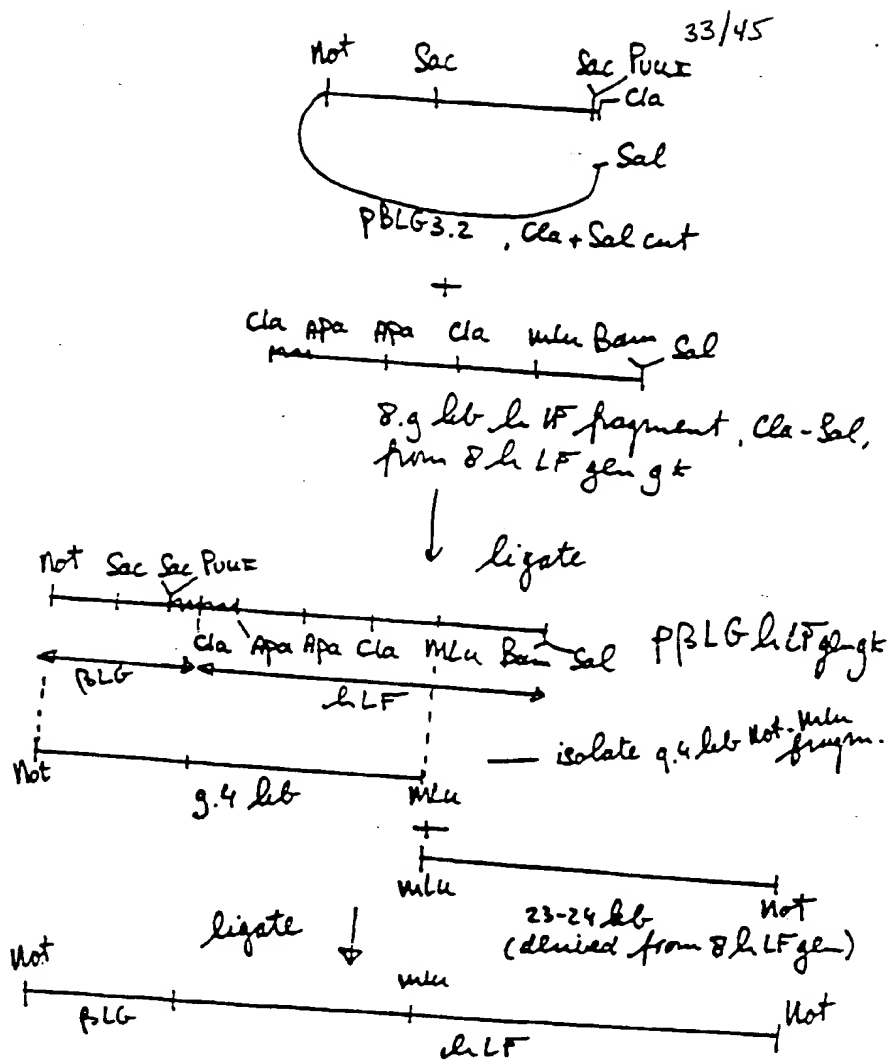 33/45
Not Sac Sac PvuII
Cla
Sal
pBLG3.2, Cla + Sal cut
+
Cla Apa Apa Cla Mlu Bam Sal
8.9 kb hLF fragment, Cla-Sal,
from 8hLF gen gk
ligate
Not Sac Sac PvuII
Cla Apa Apa Cla Mlu Bam Sal pβLG hLF gen gk
βLG
hLF
— isolate 9.4 kb Not-Mlu fragm.
Not 9.4 kb Mlu
+
Mlu 23-24 kb Not
(derived from 8hLF gen)
ligate
Not Mlu Not
βLG hLF